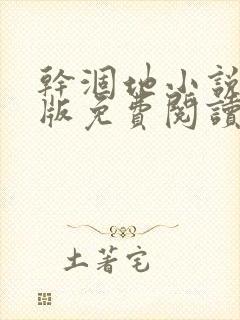 幹涸地小說
版免費閱讀
土著宅